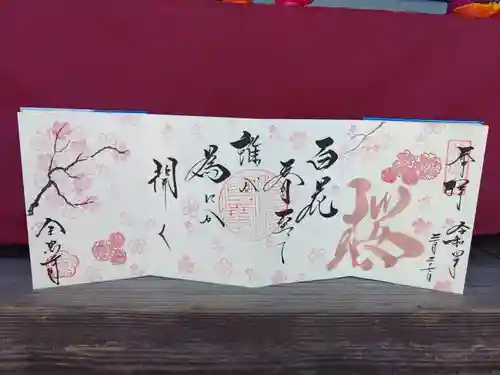 奉拝
令和四年
三月二十七日
桜
百花
春至って
誰が
為にか
開く